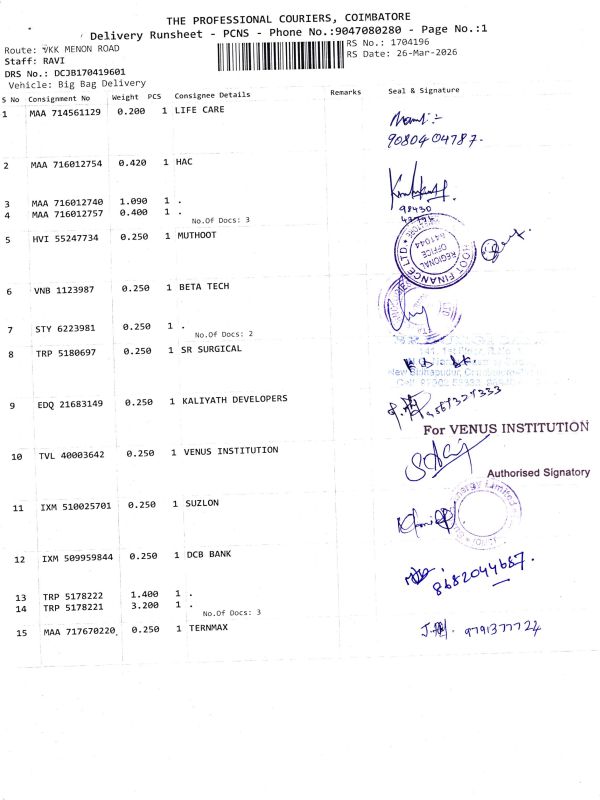 THE PROFESSIONAL COURIERS, COIMBATORE
Delivery Runsheet - PCNS - Phone No.:9047080280 - Page No.:1
Route: VKK MENON ROAD
RS No.: 1704196
Staff: RAVI
RS Date: 26-Mar-2026
DRS No.: DCJB170419601
Vehicle: Big Bag Delivery
S No Consignment No Weight PCS Consignee Details Remarks Seal & Signature
1 MAA 714561129 0.200 1 LIFE CARE
9080404787.
2 MAA 716012754 0.420 1 HAC
98430
3 MAA 716012740 1.090 1 .
4 MAA 716012757 0.400 1 .
No.Of Docs: 3
5 HVI 55247734 0.250 1 MUTHOOT
REGIONAL OFFICE 641044
6 VNB 1123987 0.250 1 BETA TECH
7 STY 6223981 0.250 1 .
No.Of Docs: 2
8 TRP 5180697 0.250 1 SR SURGICAL
9 EDQ 21683149 0.250 1 KALIYATH DEVELOPERS
For VENUS INSTITUTION
10 TVL 40003642 0.250 1 VENUS INSTITUTION
Authorised Signatory
11 IXM 510025701 0.250 1 SUZLON
12 IXM 509959844 0.250 1 DCB BANK
8682044687.
13 TRP 5178222 1.400 1 .
14 TRP 5178221 3.200 1 .
No.Of Docs: 3
15 MAA 717670220 0.250 1 TERNMAX
9791377724